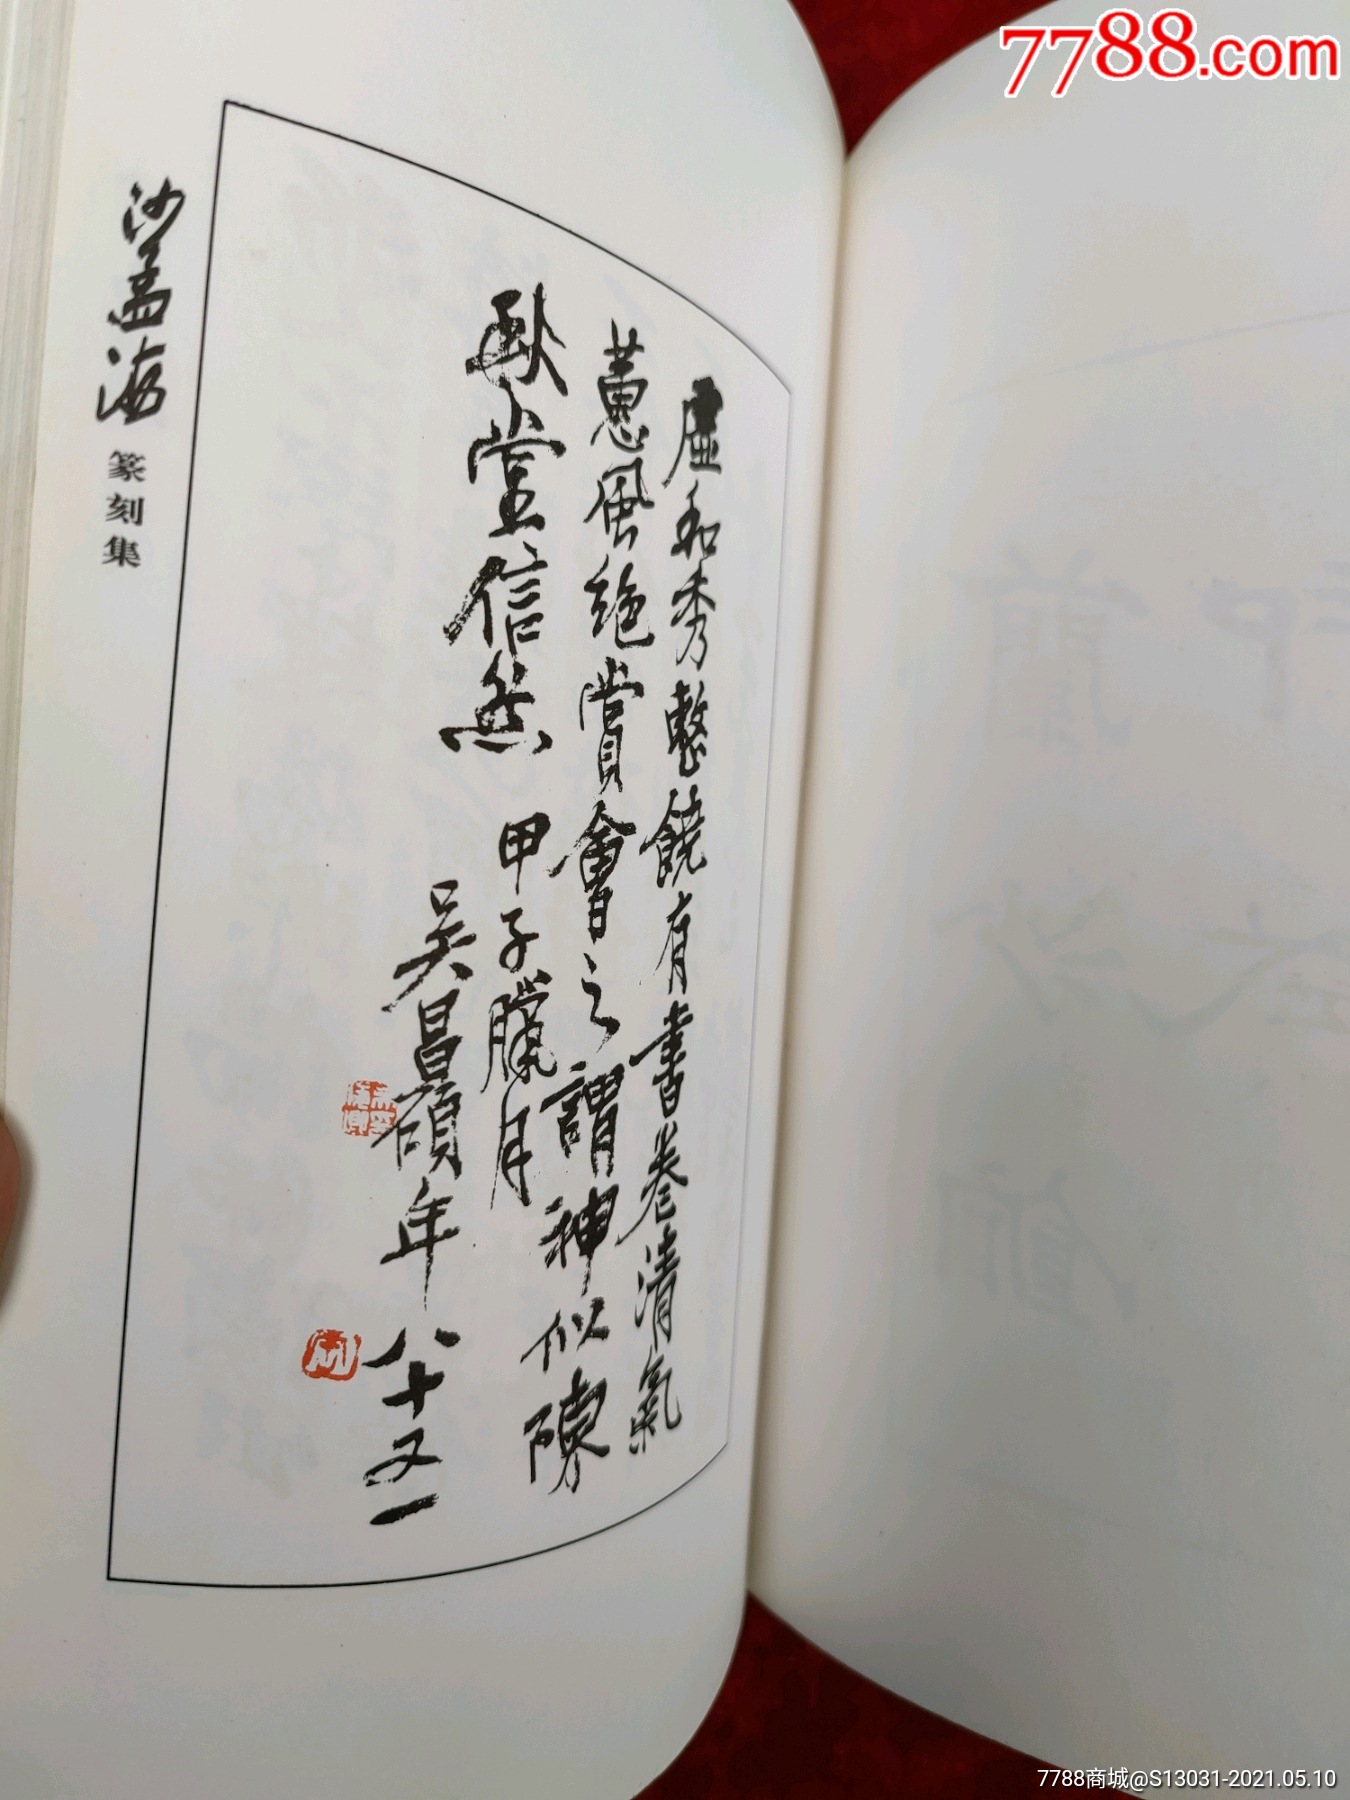 7788.com
沙孟海
篆刻集
虛和秀整饒有書卷清氣
蕙風絕賞會之謂神似陳
秋堂信然 甲子臘月
吳昌碩年八十又一
7788商城@S13031-2021.05.10